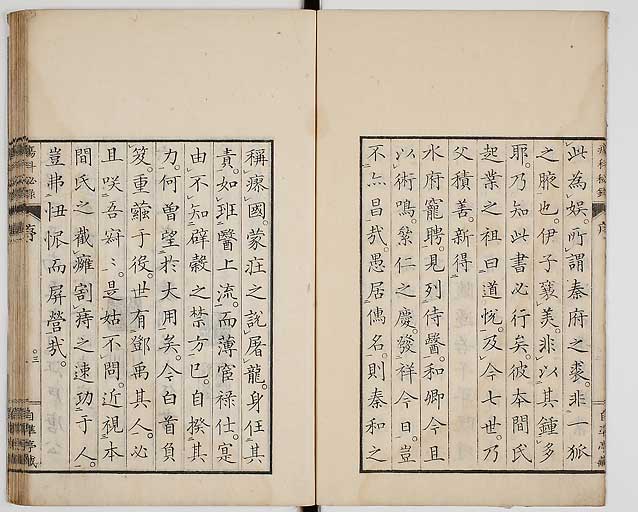 此為娛。所謂秦府之裘。非一狐
之腋也。伊子褒美。非以其鍾多
耶。乃知此書必行矣。彼本間氏
起業之祖曰道悅。及今七世。乃
父積善。新得
水府寵聘。見列侍醫。和卿今且
以術鳴。縈仁之慶。發祥今日。豈
不亦昌哉。愚居傳名。則秦和之
稱療國。蒙莊之說屠龍。身任其
責。如班醫上流。而薄宦祿仕。寔
由不知辟穀之禁方已。自揆其
力。何曾望於大用矣。今白首負
笈。重繭于役。世有鄧禹其人。必
且咲吾寂〻。是姑不問。近視本
間氏之截癰割痔之速功于人。
豈弗忸怩而屏營哉。
瘍科秘錄
序
三
自準亭藏